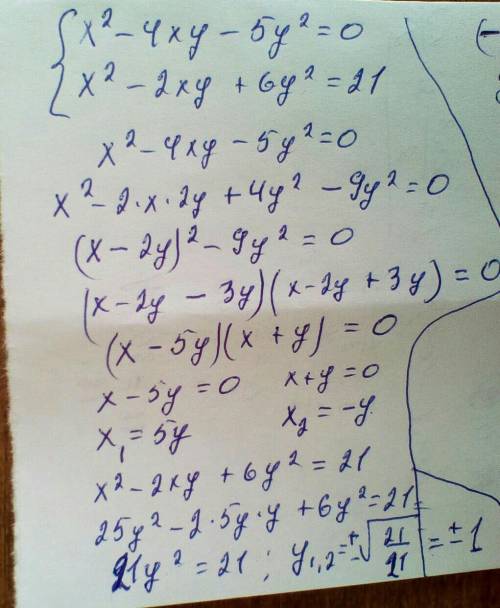 { x² - 4xy - 5y² = 0
x² - 2xy + 6y² = 21
x² - 4xy - 5y² = 0
x² - 2·x·2y + 4y² - 9y² = 0
(x - 2y)² - 9y² = 0
(x - 2y - 3y)(x - 2y + 3y) = 0
(x - 5y)(x + y) = 0
x - 5y = 0 x + y = 0
x₁ = 5y x₂ = -y
x² - 2xy + 6y² = 21
25y² - 2·5y·y + 6y² = 21
21y² = 21 ; y₁,₂ = ±√(21/21) = ±1